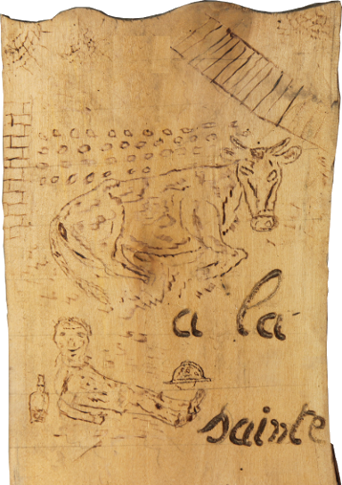 a la
sainte